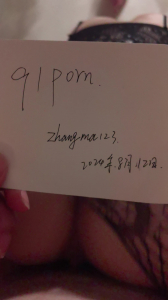 91porn.
zhangma123.
2024年8月12日.